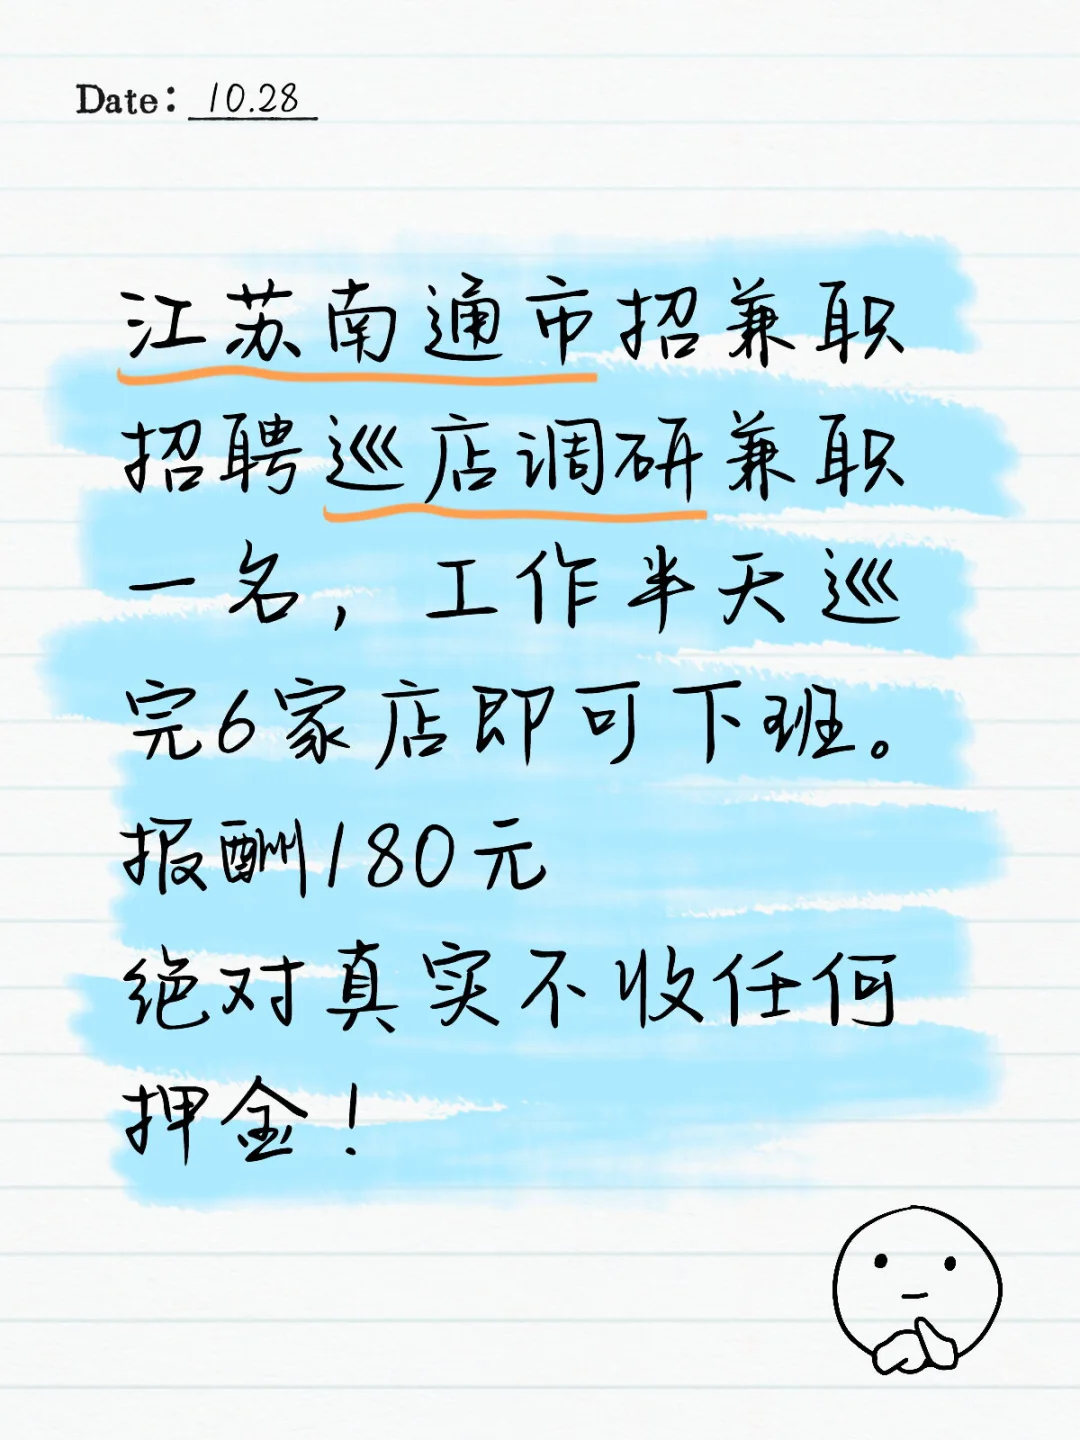 Date: 10.28
江苏南通市招兼职
招聘巡店调研兼职
一名，工作半天巡
完6家店即可下班。
报酬180元
绝对真实不收任何
押金！